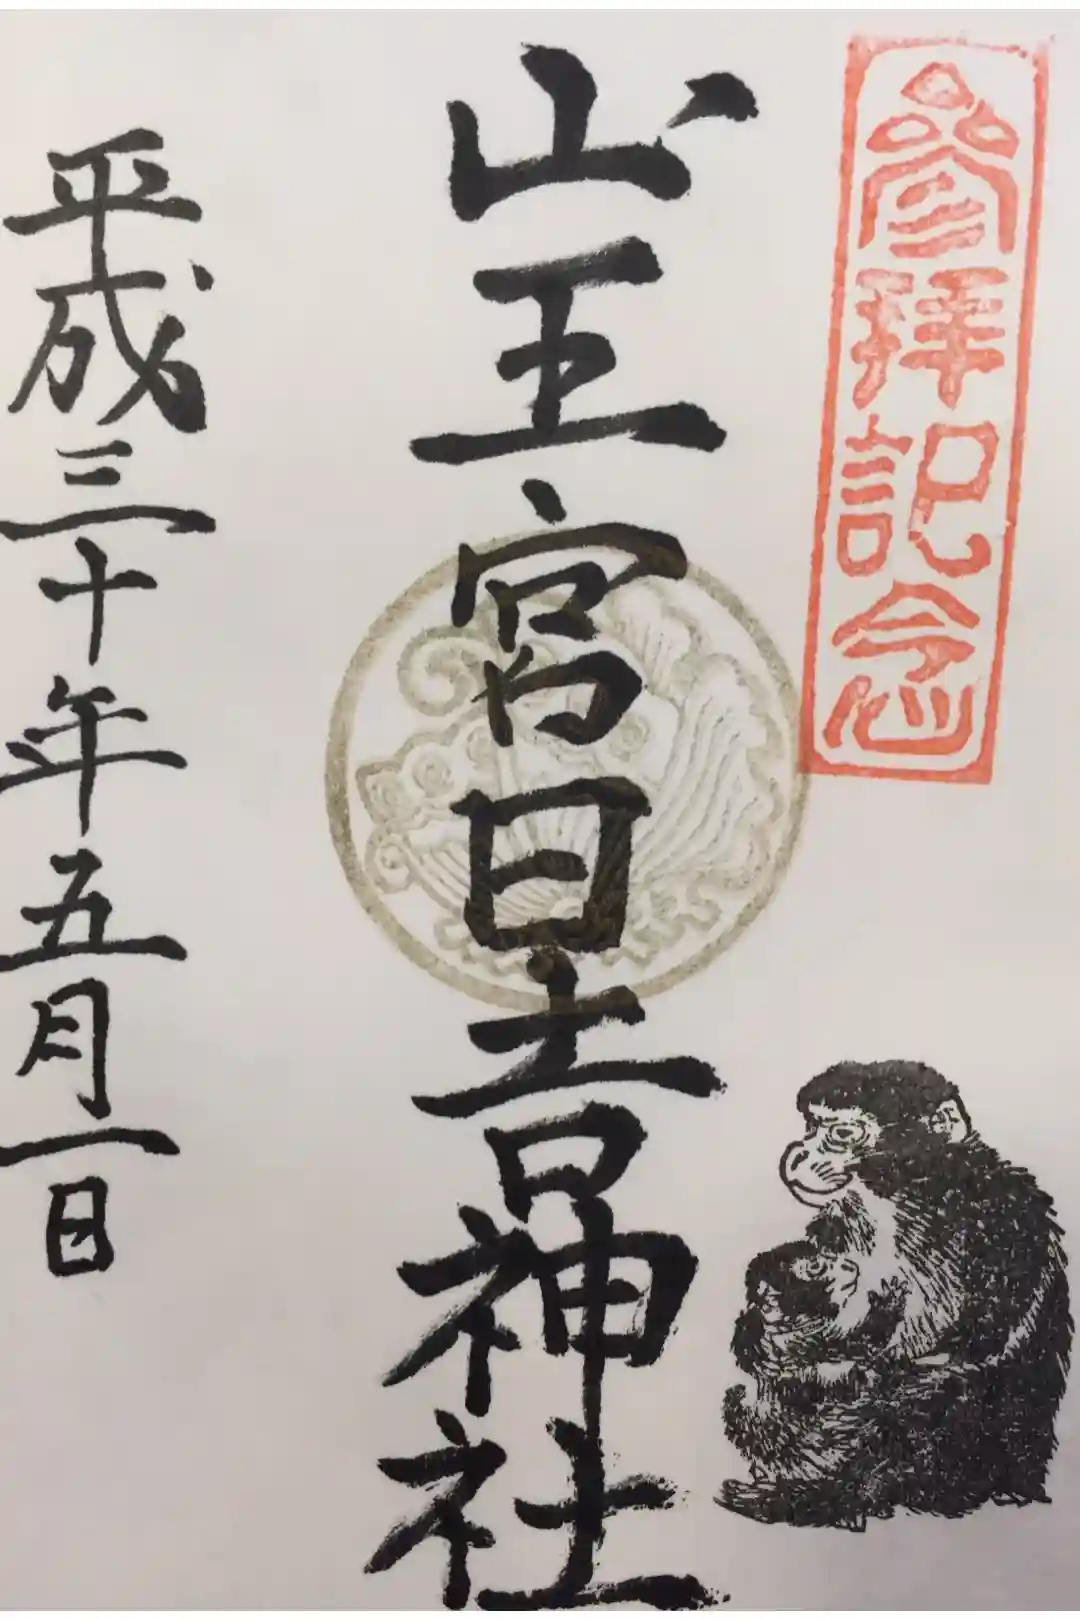 参拝記念
山王宮日吉神社
平成三十年五月一日